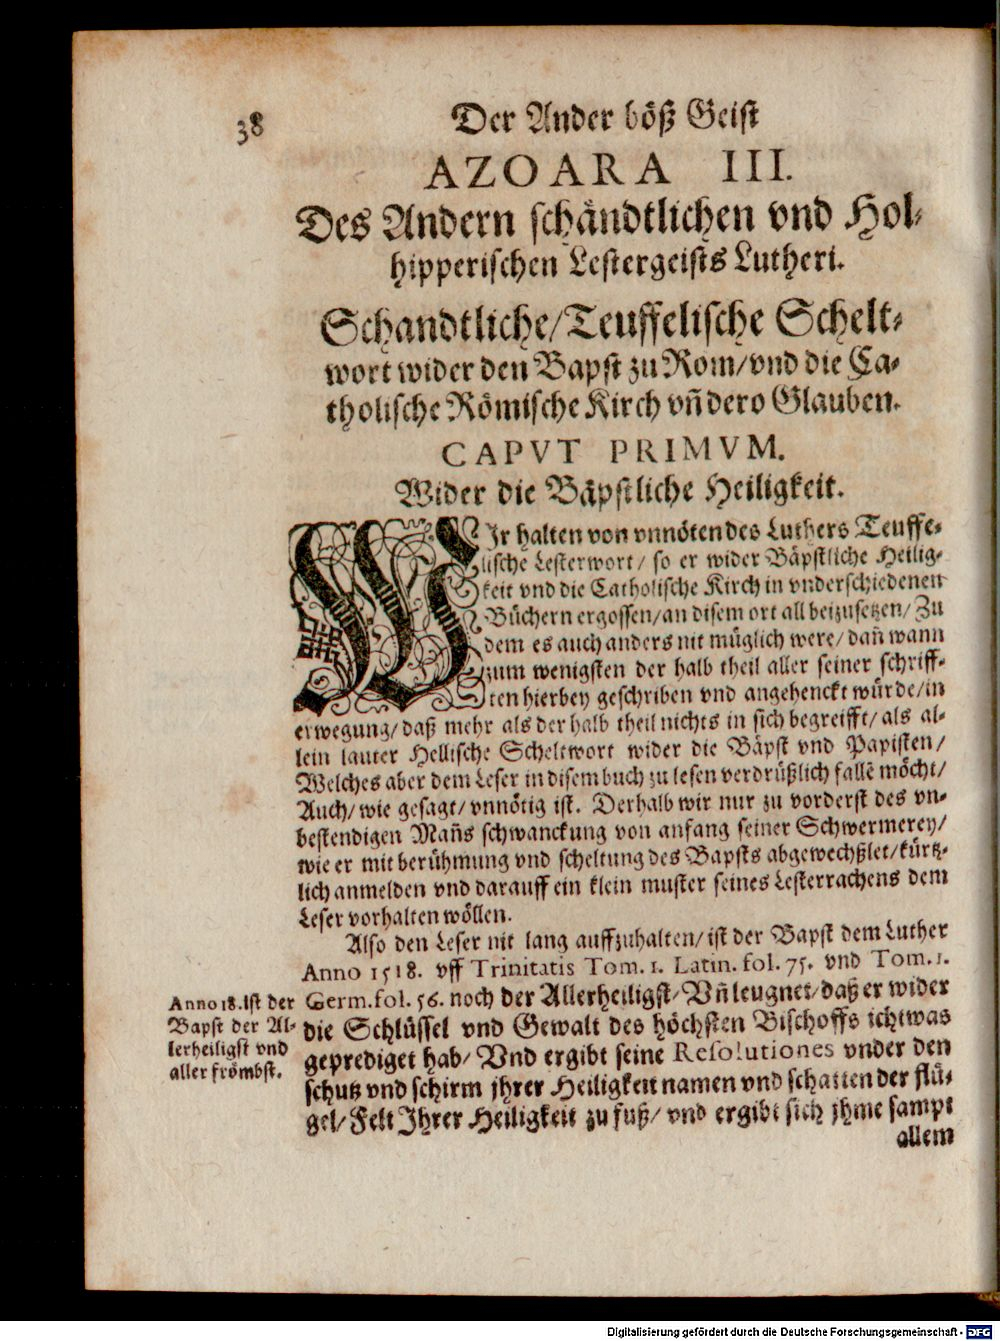 38
Der Ander böß Geist
AZOARA III.
Des Andern schändtlichen vnd Hol-
hipperischen Lestergeists Lutheri.
Schandtliche/Teuffelische Schelt-
wort wider den Bapst zu Rom/vnd die Ca-
tholische Römische Kirch vñ dero Glauben.
CAPVT PRIMVM.
Wider die Bäpstliche Heiligkeit.
WJr halten von vnnöten des Luthers Teuffe-
lische Lesterwort/ so er wider Bäpstliche Heilig-
keit vnd die Catholische Kirch in vnderschiedenen
Büchern ergossen/an disem ort all beizusetzen/ Zu
dem es auch anders nit müglich were/dañ wann
zum wenigsten der halb theil aller seiner schriff-
ten hierbey geschriben vnd angehenckt würde/in
erwegung/daß mehr als der halb theil nichts in sich begreifft/als al-
lein lauter Hellische Scheltwort wider die Bäpst vnd Papisten/
Welches aber dem Leser in disem buch zu lesen verdrüßlich fallē möcht/
Auch/wie gesagt/vnnötig ist. Derhalb wir nur zu vorderst des vn-
bestendigen Mañs schwanckung von anfang seiner Schwermerey/
wie er mit berühmung vnd scheltung des Bapsts abgewechßlet/kürtz-
lich anmelden vnd darauff ein klein muster seines Lesterrachens dem
Leser vorhalten wöllen.
Also den Leser nit lang auffzuhalten/ist der Bapst dem Luther
Anno 1518. vff Trinitatis Tom. 1. Latin. fol. 75. vnd Tom. 1.
Germ. fol. 56. noch der Allerheiligst/Vñ leugnet/daß er wider
die Schlüssel vnd Gewalt des höchsten Bischoffs ichtwas
geprediget hab/ Vnd ergibt seine Resolutiones vnder den
schutz vnd schirm jhrer Heiligkeit namen vnd schatten der flü-
gel/ Felt Jhrer Heiligkeit zu fuß/ vnd ergibt sich jhme sampt
allem
Anno 18. ist der
Bapst der Al-
lerheiligst vnd
aller frömbst.
Digitalisierung gefördert durch die Deutsche Forschungsgemeinschaft - DFG